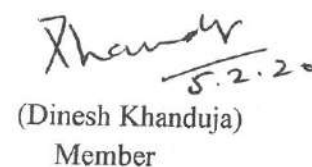 5.2.20
(Dinesh Khanduja)
Member